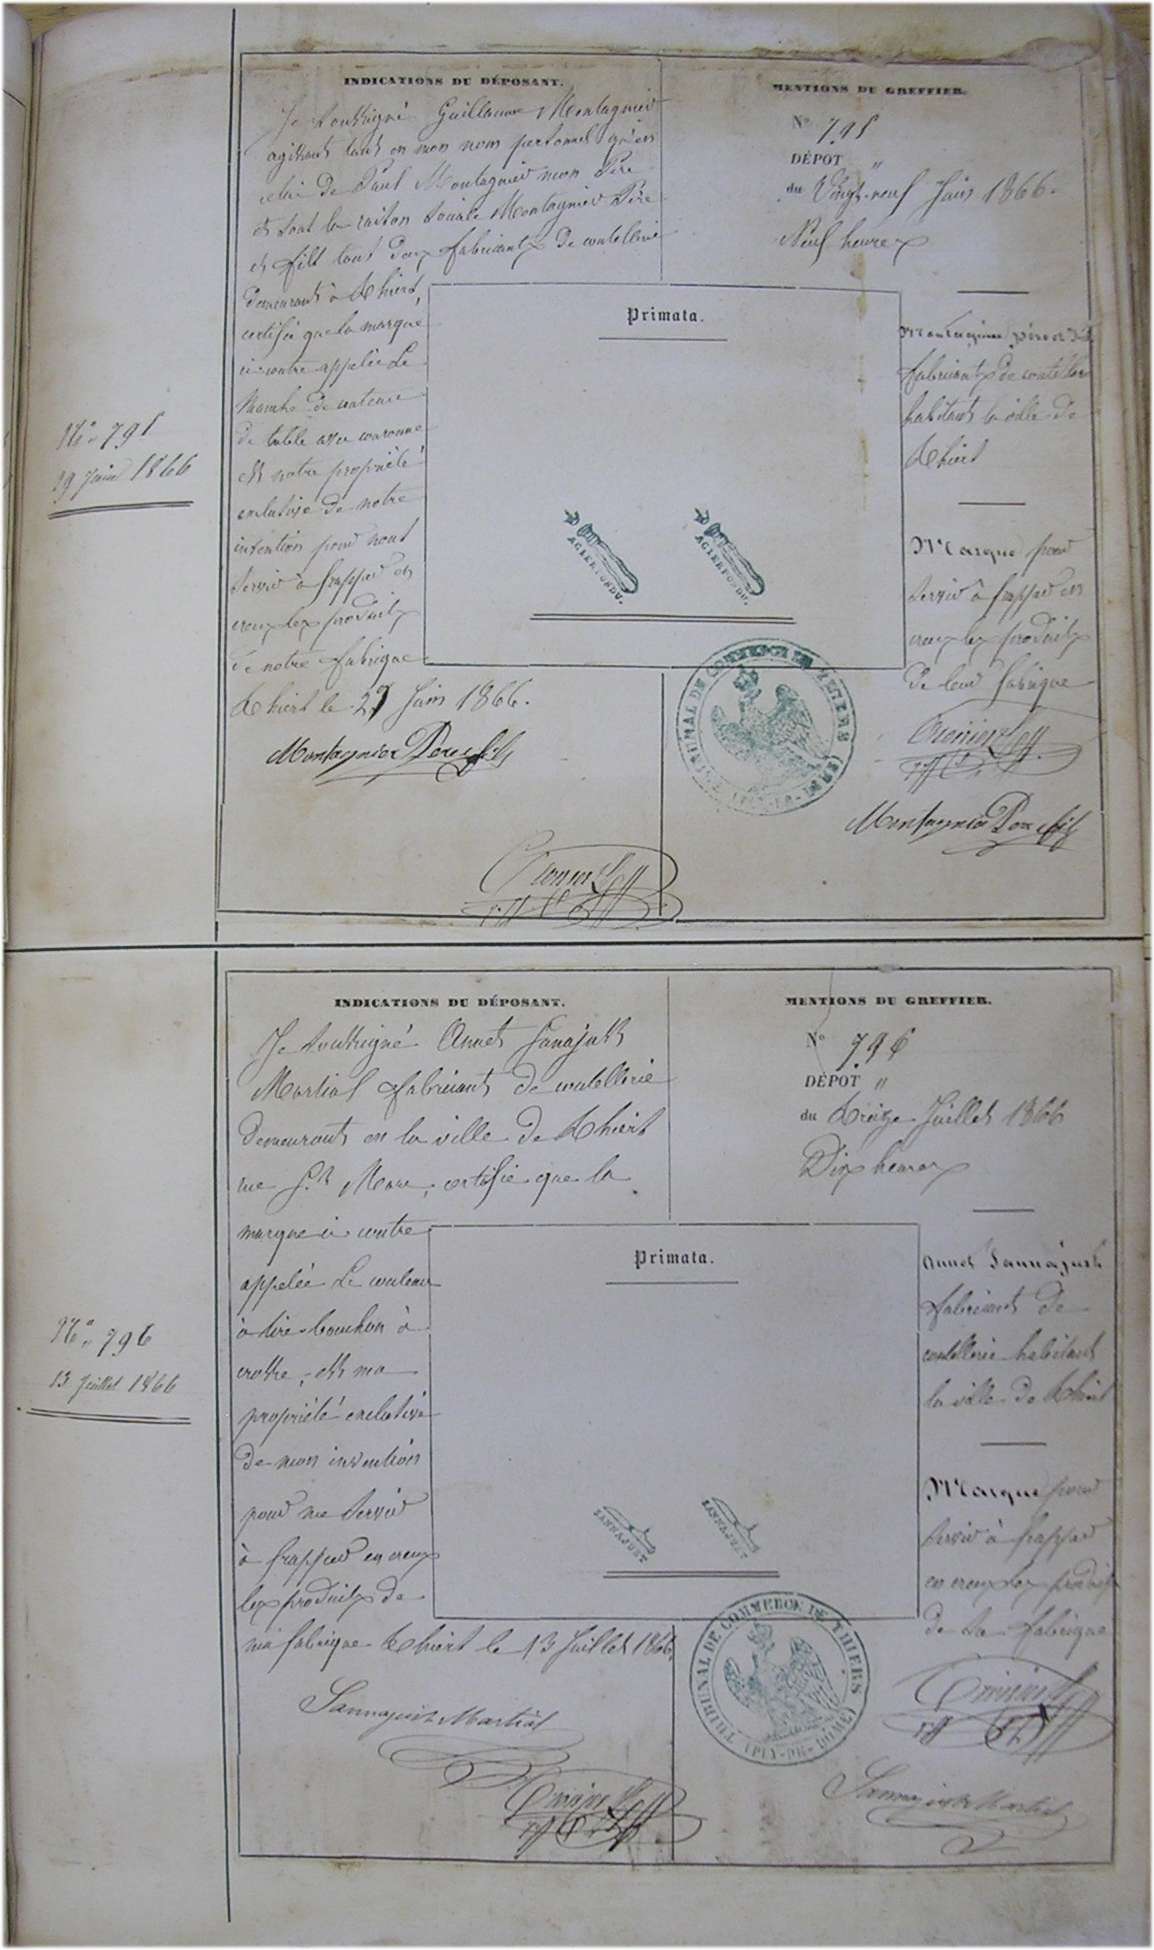 INDICATIONS DU DÉPOSANT.
Je soussigné Guillaume Montagnier
agissant tant en mon nom personnel qu'en
celui de Paul Montagnier mon Père
et sous la raison sociale Montagnier Père
et fils tous deux fabricants de coutellerie
demeurant à Thiers,
certifie que la marque
ci-contre appelée Le
Manche de couteau
de table avec couronne
est notre propriété
exclusive de notre
invention pour nous
servir à frapper en
creux les produits
de notre fabrique
Thiers le 29 Juin 1866.
Montagnier Pere & fils
MENTIONS DU GREFFIER.
N° 795
DÉPOT "
du Vingt-neuf Juin 1866.
Neuf heures
Montagnier père et fils
fabricants de coutellerie
habitant la ville de
Thiers
Marque pour
servir à frapper en
creux les produits
de leur fabrique
Montagnier Pere & fils
Primata.
ACIER FONDU.
ACIER FONDU.
TRIBUNAL DE COMMERCE DE THIERS (PUY-DE-DOME)
N° 795
29 Juin 1866
INDICATIONS DU DÉPOSANT.
Je soussigné Annet Sannajust
Martial fabricant de coutellerie
demeurant en la ville de Thiers
rue St Marc, certifie que la
marque ci contre
appelée Le couteau
à tire-bouchon à
crosse, est ma
propriété exclusive
de mon invention
pour me servir
à frapper en creux
les produits de
ma fabrique Thiers le 13 Juillet 1866.
Sannajust Martial
MENTIONS DU GREFFIER.
N° 796
DÉPOT "
du Treize Juillet 1866
Dix heures
Annet Sannajust
fabricant de
coutellerie habitant
la ville de Thiers
Marque pour
servir à frapper
en creux les produits
de sa fabrique
Sannajust Martial
Primata.
SANNAJUST
SANNAJUST
TRIBUNAL DE COMMERCE DE THIERS (PUY-DE-DOME)
N° 796
13 Juillet 1866